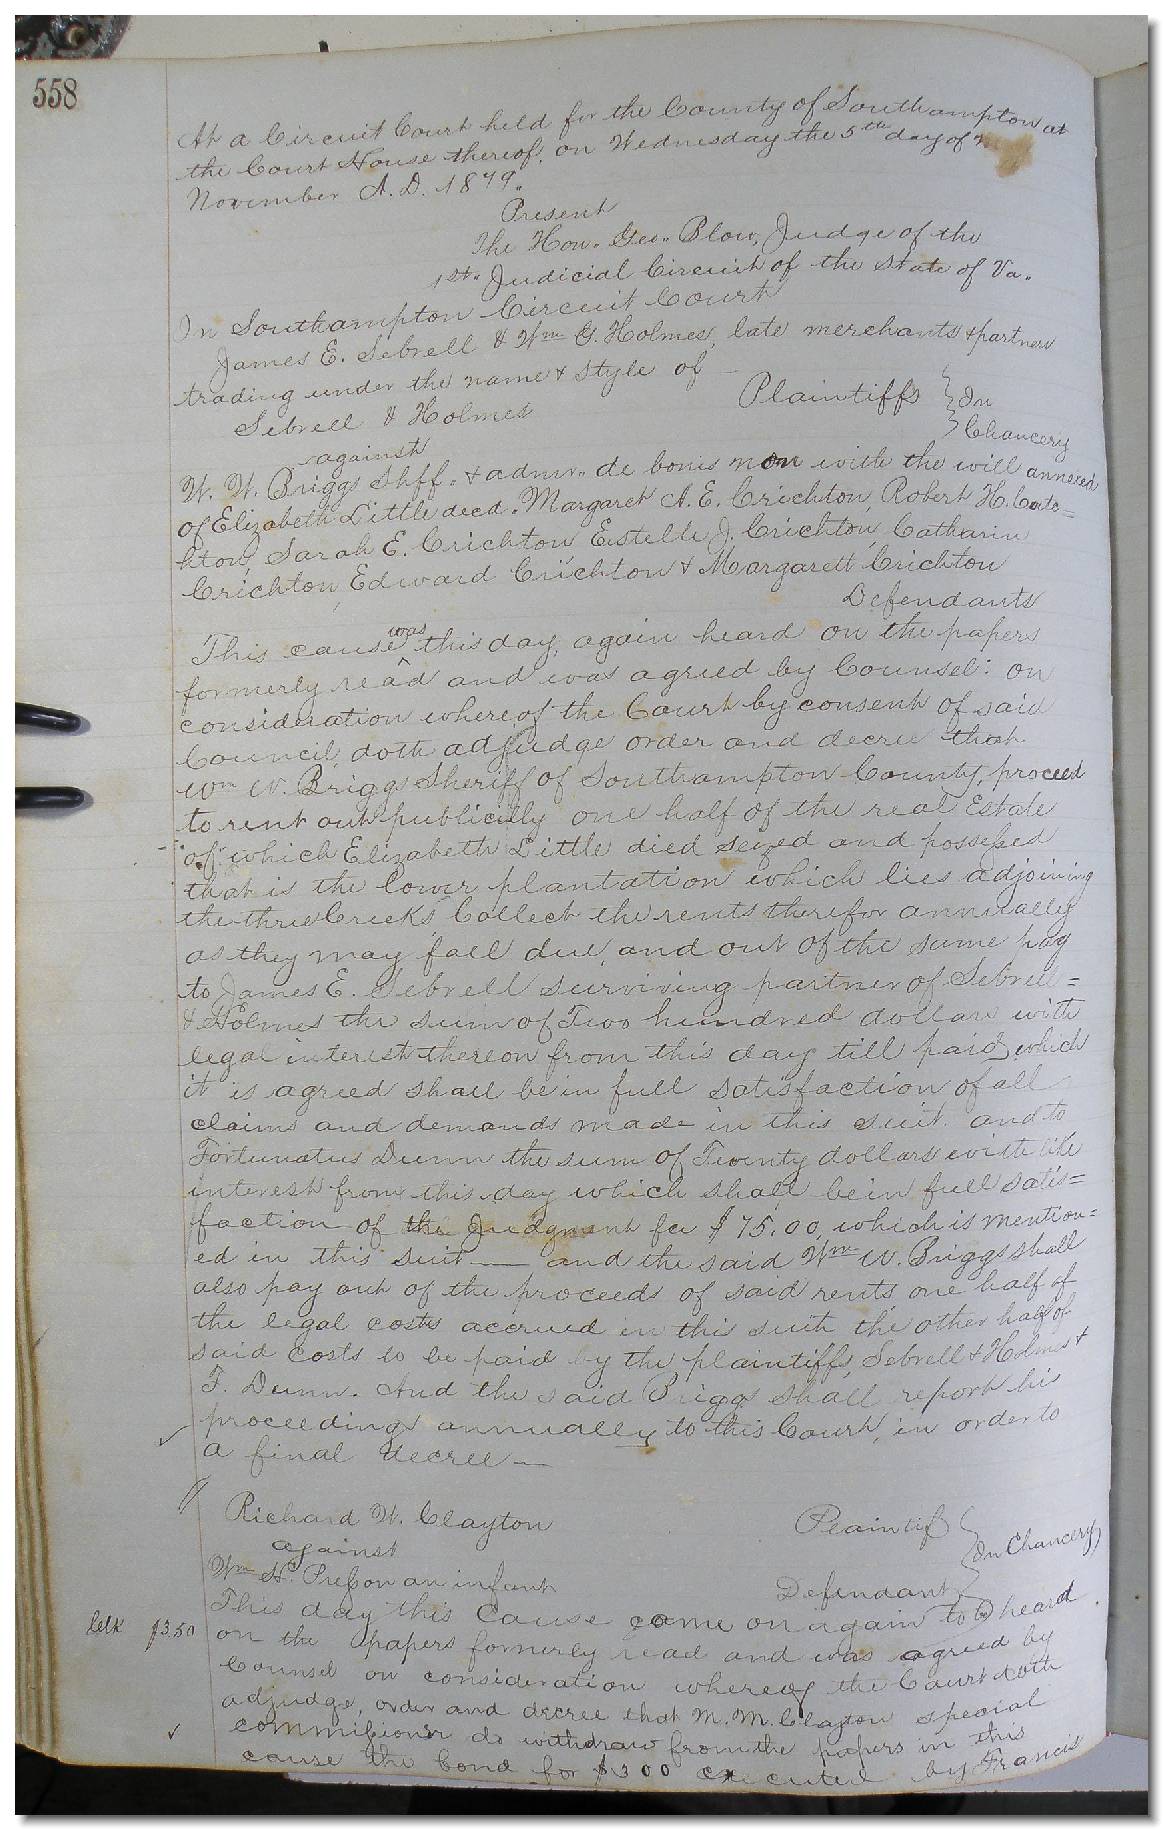 558
At a Circuit Court held for the County of Southampton at
the Court House thereof, on Wednesday the 5th day of
November A.D. 1879.
Present
The Hon. Geo. Blow, Judge of the
1st. Judicial Circuit of the State of Va.
In Southampton Circuit Court
James E. Sebrell & Wm G. Holmes, late merchants & partners
trading under the name & style of —
Sebrell & Holmes
Plaintiffs } In
Chancery
against
W. W. Briggs Shff. & admr. de bonis non with the will annexed
of Elizabeth Little decd. Margaret A. E. Crichton, Robert H.
Sarah E. Crichton Estelle J. Crichton, Catharin
Crichton, Edward Crichton & Margarett Crichton
Defendants
This cause was this day, again heard on the papers
formerly read and was agreed by Counsel: on
consideration whereof the Court by consent of said
Council, doth adjudge order and decree that
Wm W. Briggs Sheriff of Southampton County, proceed
to rent out publically one half of the real Estate
of which Elizabeth Little died seized and possessed
that is the lower plantation which lies adjoining
the three Creeks Collect the rents therefor annually
as they may fall due, and out of the same pay
to James E. Sebrell surviving partner of Sebrell=
& Holmes the sum of Two hundred dollars with
legal interest thereon from this day till paid, which
it is agreed shall be in full satisfaction of all
claims and demands made in this suit. and to
Fortunatus Dunn the sum of Twenty dollars with like
interest from this day which shall be in full satis=
faction of the Judgment for $75.00, which is mention=
ed in this suit — and the said Wm W. Briggs shall
also pay out of the proceeds of said rents one half of
the legal costs accrued in this suit, the other half of
said costs to be paid by the plaintiffs, Sebrell & Holmes &
F. Dunn. And the said Briggs shall report his
proceedings annually to this Court, in order to
a final decree —
Richard W. Clayton Plaintif } In Chancery
against
Wm H. Presson an infant Defendant
This day this cause came on again to be heard
Clk $3.50
on the papers formerly read and was agreed by
Counsel on consideration whereof the Court doth
adjudge, order and decree that M. M. Clayton special
commissioner do withdraw from the papers in this
cause the bond for $300 executed by Francis